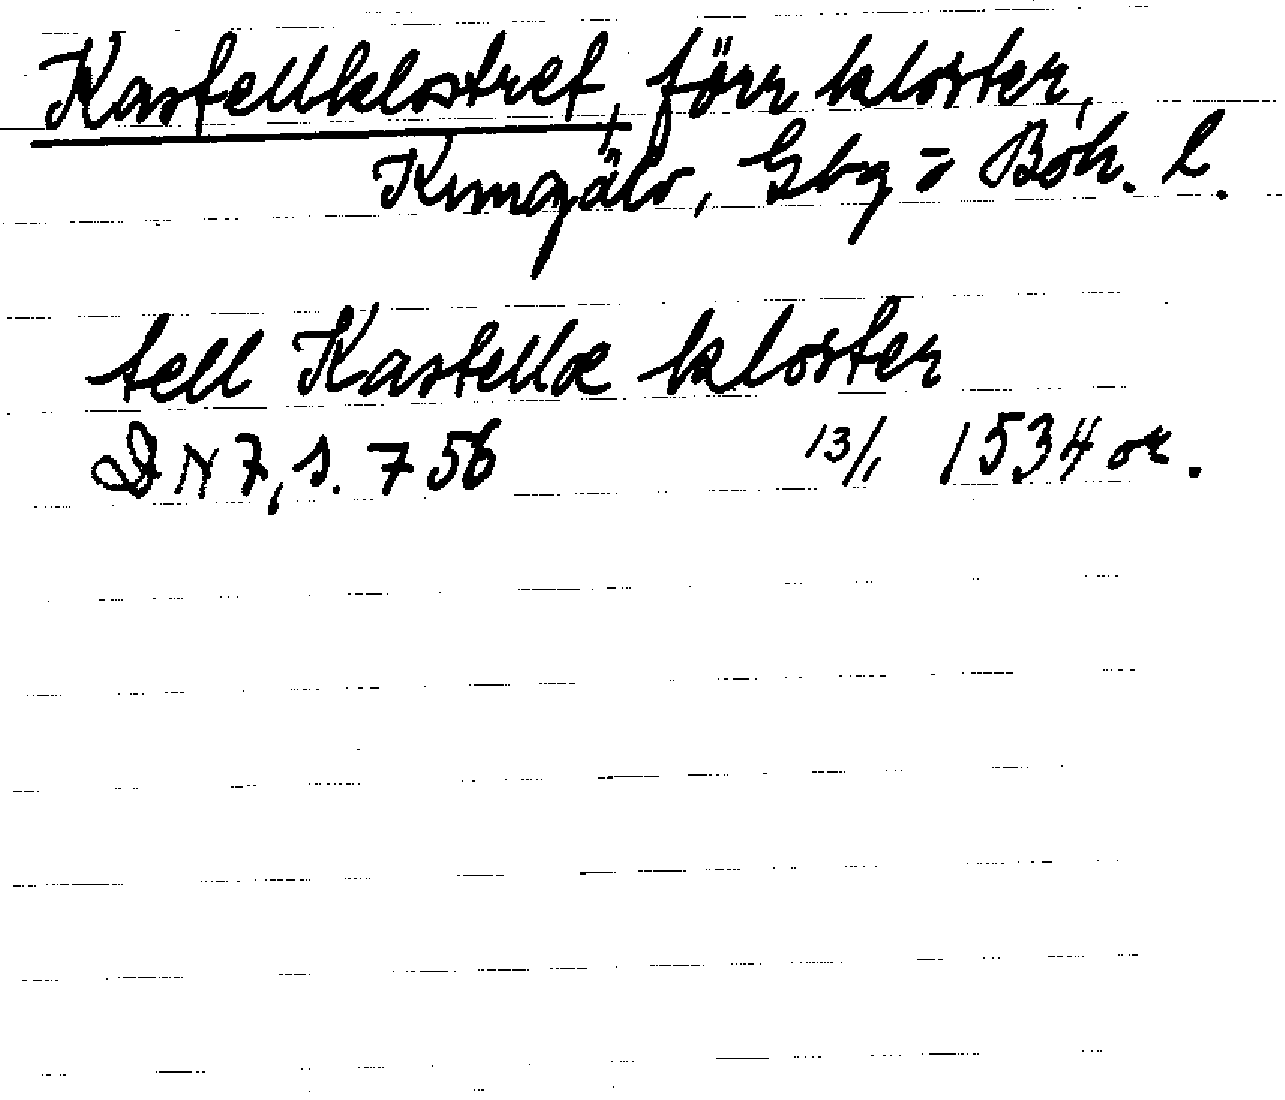 Kastellklostret, förr kloster,
Kungälv, Gbg = Boh. l.
tell Kastellæ kloster
DN 7, s. 756 13/1 1534 or.